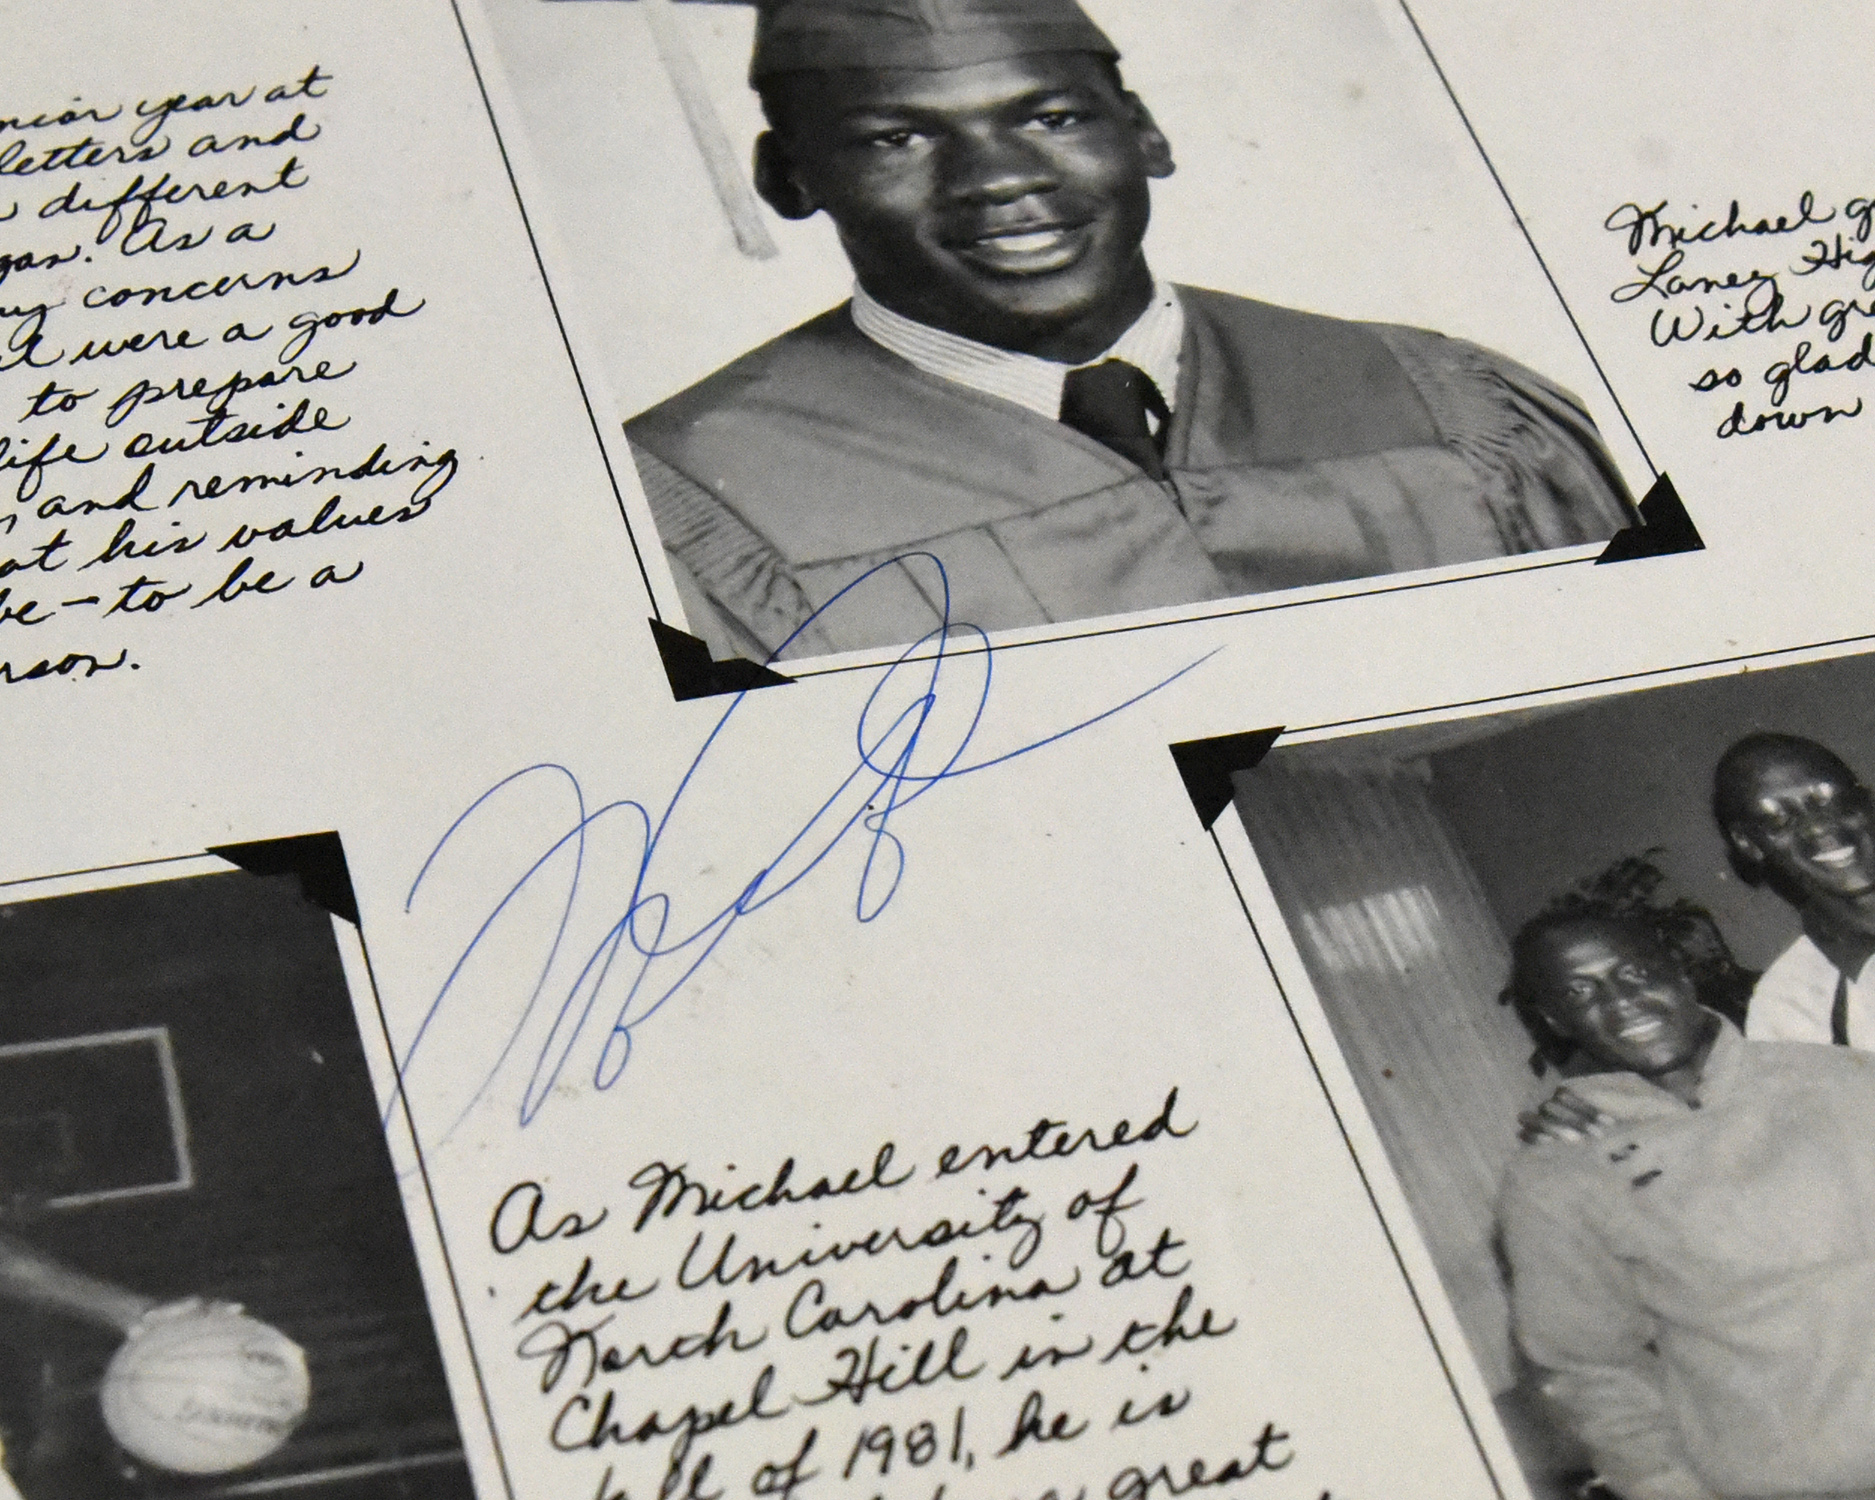 year at
letters and
different
As a
concerns
were a good
to prepare
life outside
and reminding
his values
be - to be a
Michael
Laney
With
so glad
down
As Michael entered
the University of
North Carolina at
Chapel Hill in the
fall of 1981, he is
great